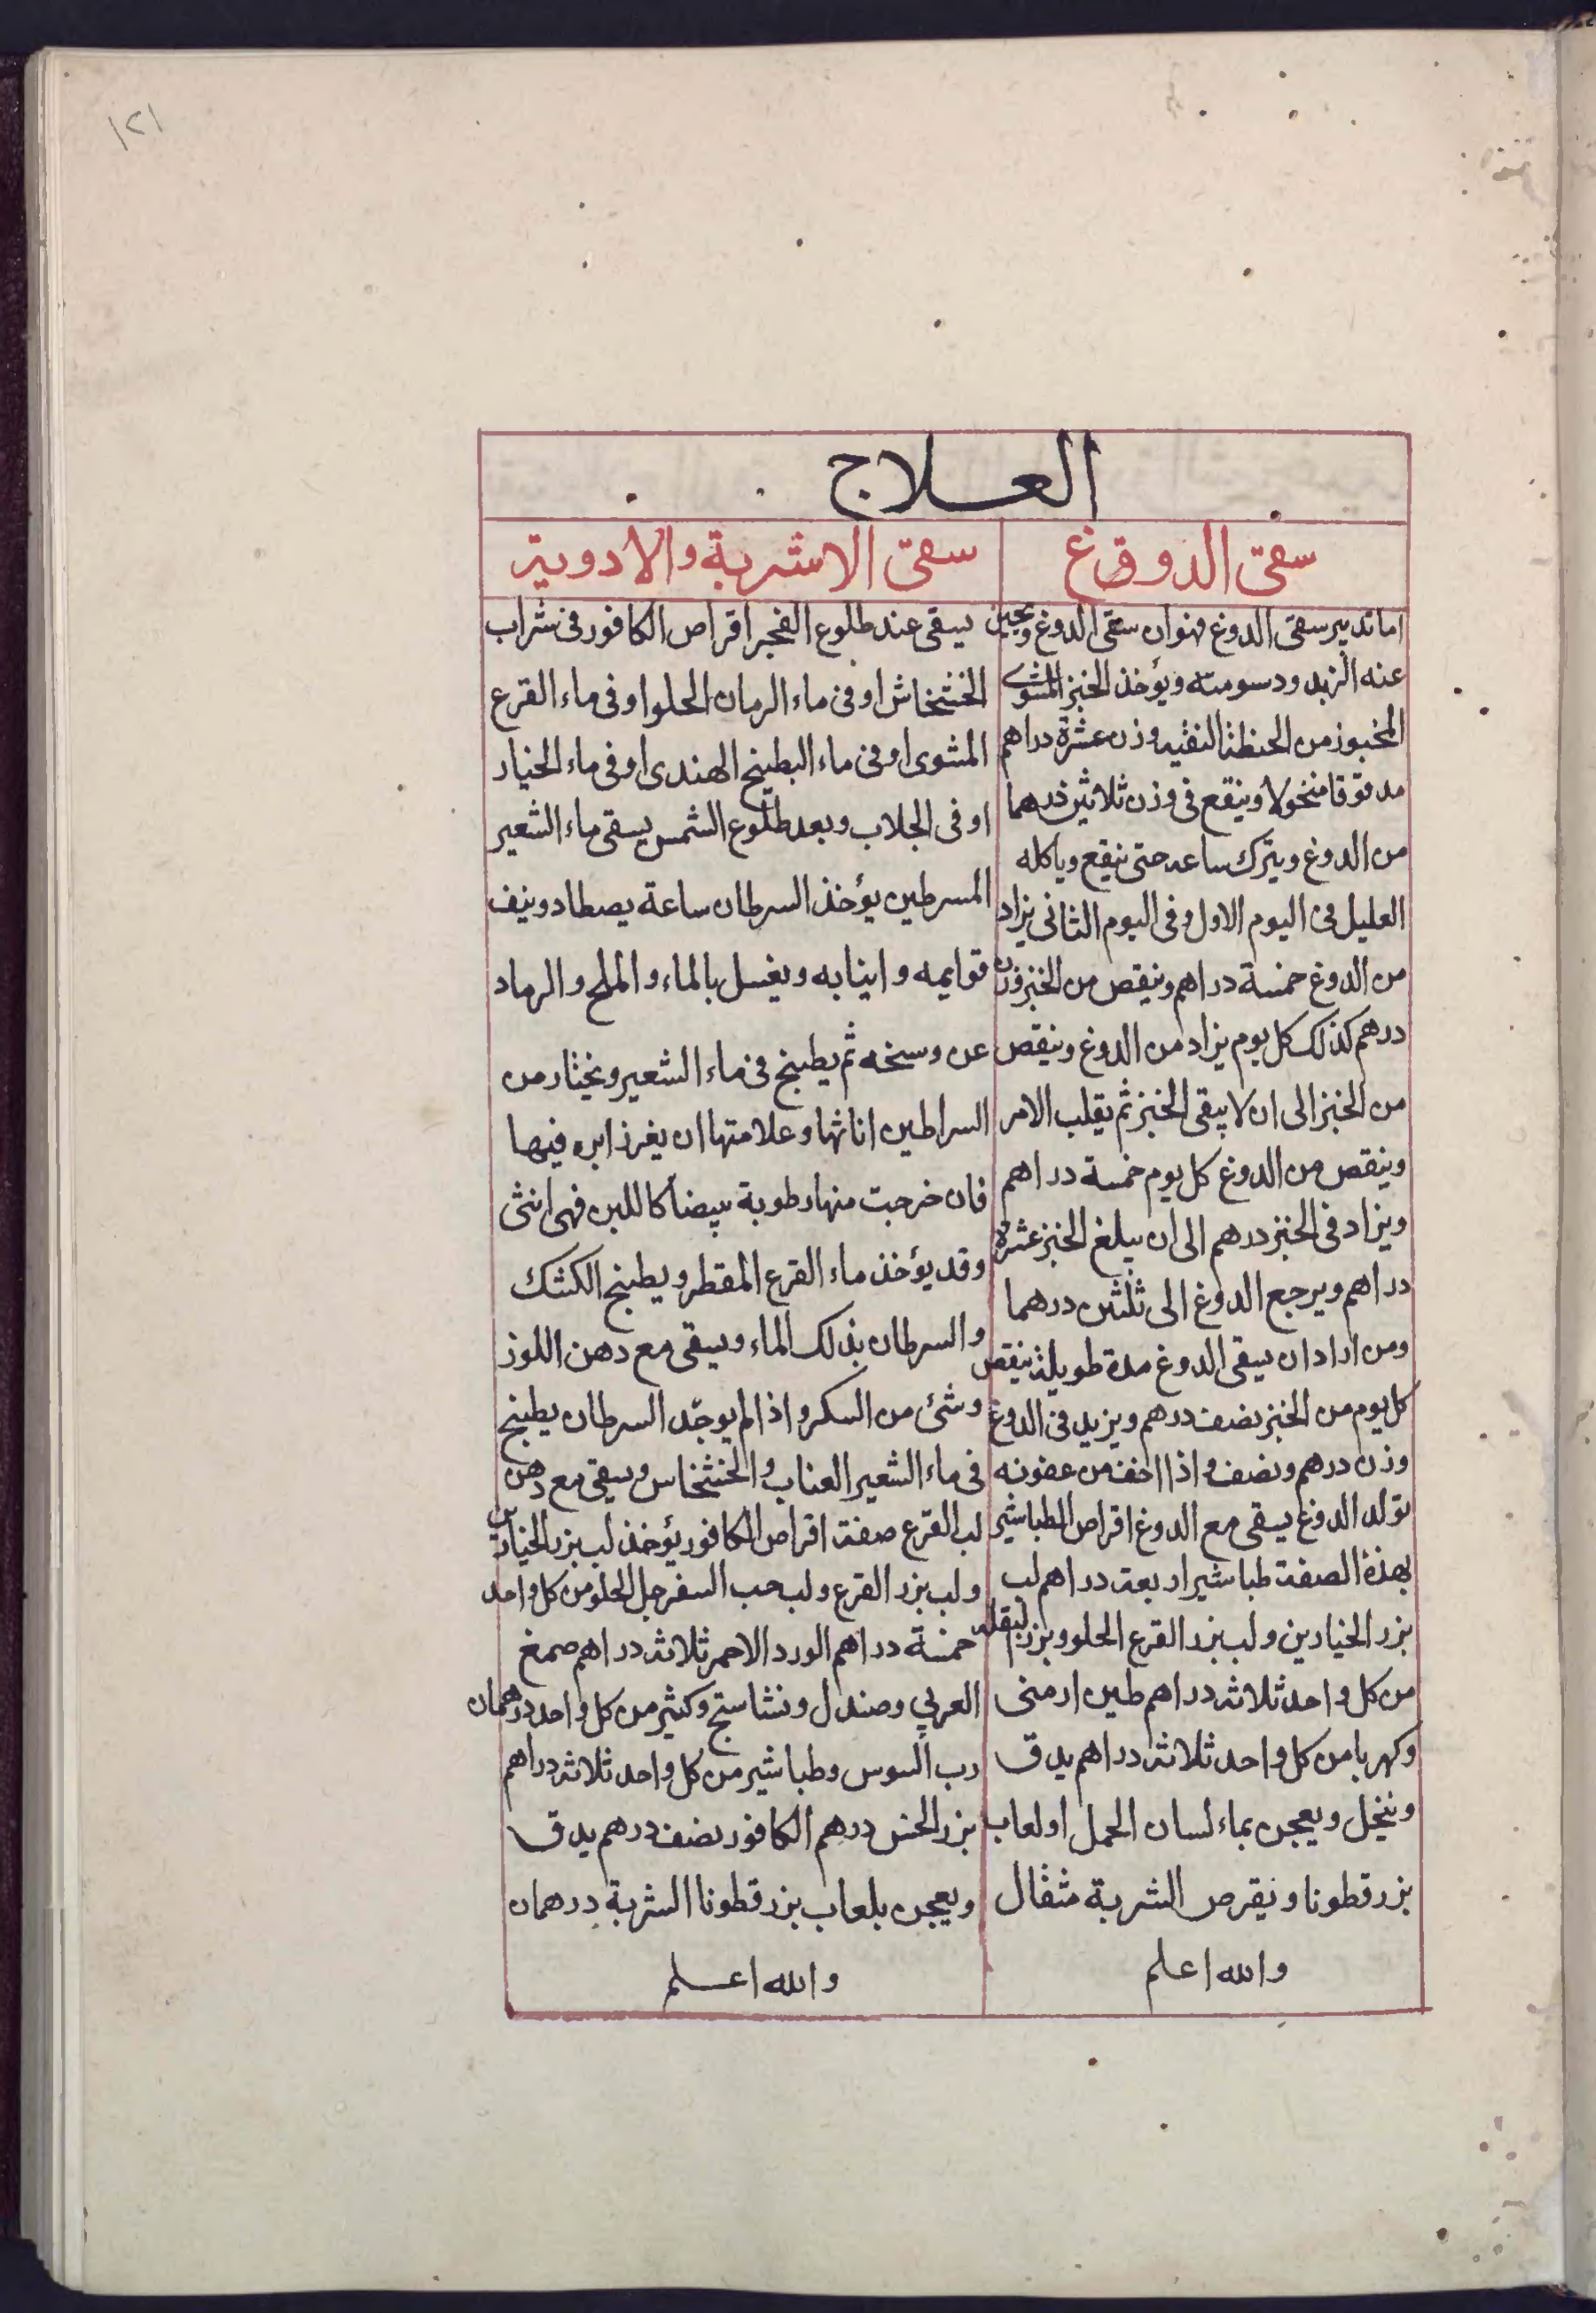 ١٢١
العلاج
سقى الدوغ
اما تدبير سقى الدوغ فهو ان سقى الدوغ
عنه الزبد ودسومته ويؤخذ الخبز المشوى
المخبوز من الحنطة النقيه وزن عشرة دراهم
مدقوقا منخولا وينقع فى وزن ثلاثين درهما
من الدوغ ويترك ساعه حتى ينقع وياكله
العليل فى اليوم الاول وفى اليوم الثانى يزاد
من الدوغ خمسة دراهم وينقص من الخبز وزن
درهم كذلك كل يوم يزاد من الدوغ وينقص
من الخبز الى ان لا يبقى الخبز ثم يقلب الامر
وينقص من الدوغ كل يوم خمسة دراهم
ويزاد فى الخبز درهم الى ان يبلغ الخبز عشرة
دراهم ويرجع الدوغ الى ثلثين درهما
ومن اراد ان يسقى الدوغ مدة طويلة ينقص
كل يوم من الخبز نصف درهم ويزيد فى الدوغ
وزن درهم ونصف واذا اخف من عفونه
تولد الدوغ يسقى مع الدوغ اقراص الطباشير
بهذة الصفة طباشير اربعة دراهم لب
بزر الخيارين ولب بزر القرع الحلو وبزر لبقله
من كل واحد ثلاثه دراهم طين ارمنى
وكهربا من كل واحد ثلاثه دراهم يدق
وينخل ويعجن بماء لسان الحمل او لعاب
بزر قطونا ويقرص الشربة مثقال
والله اعلم
سقى الاشربة والادويه
يسقى عند طلوع الفجر اقراص الكافور فى شراب
الخشخاش او فى ماء الرمان الحلو او فى ماء القرع
المشوى او فى ماء البطيخ الهندى او فى ماء الخيار
او فى الجلاب وبعد طلوع الشمس يسقى ماء الشعير
المسرطين يؤخذ السرطان ساعة يصطاد وينف
قوايمه وانيابه ويغسل بالماء والملح والرماد
عن وسخه ثم يطبخ فى ماء الشعير ويختار من
السراطين اناثها وعلامتها ان يغرز ابره فيها
فان خرجت منها رطوبة بيضا كاللبن فهى انثى
وقد يؤخذ ماء القرع المقطر ويطبخ الكشك
والسرطان بذلك الماء ويسقى مع دهن اللوز
وشئ من السكر واذا لم يوجد السرطان يطبخ
فى ماء الشعير العناب والخشخاس ويسقى مع دهن
لب القرع صفة اقراص الكافور يؤخذ لب بزر الخيارين
ولب بزر القرع ولب حب السفرجل الحلو من كل واحد
خمسة دراهم الورد الاحمر ثلاثه دراهم صمغ
العربي وصندل ونشاستج وكثير من كل واحد درهمان
رب السوس وطباشير من كل واحد ثلاثه دراهم
بزر الخس درهم الكافور نصف درهم يدق
ويعجن بلعاب بزر قطونا الشربة درهمان
والله اعلم